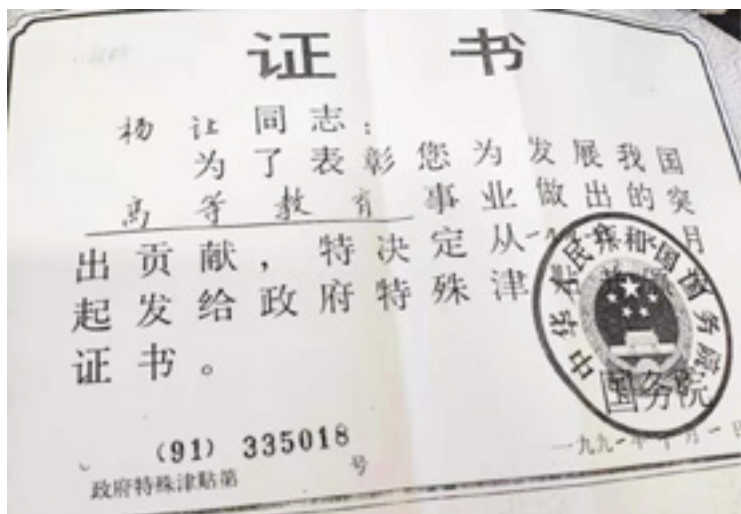 证书
杨让同志：
为了表彰您为发展我国
高等教育事业做出的突
出贡献，特决定从一九 月
起发给政府特殊津
证书。
中华人民共和国国务院
国务院
(91) 335018
政府特殊津贴第 号
一九九一年 月一日